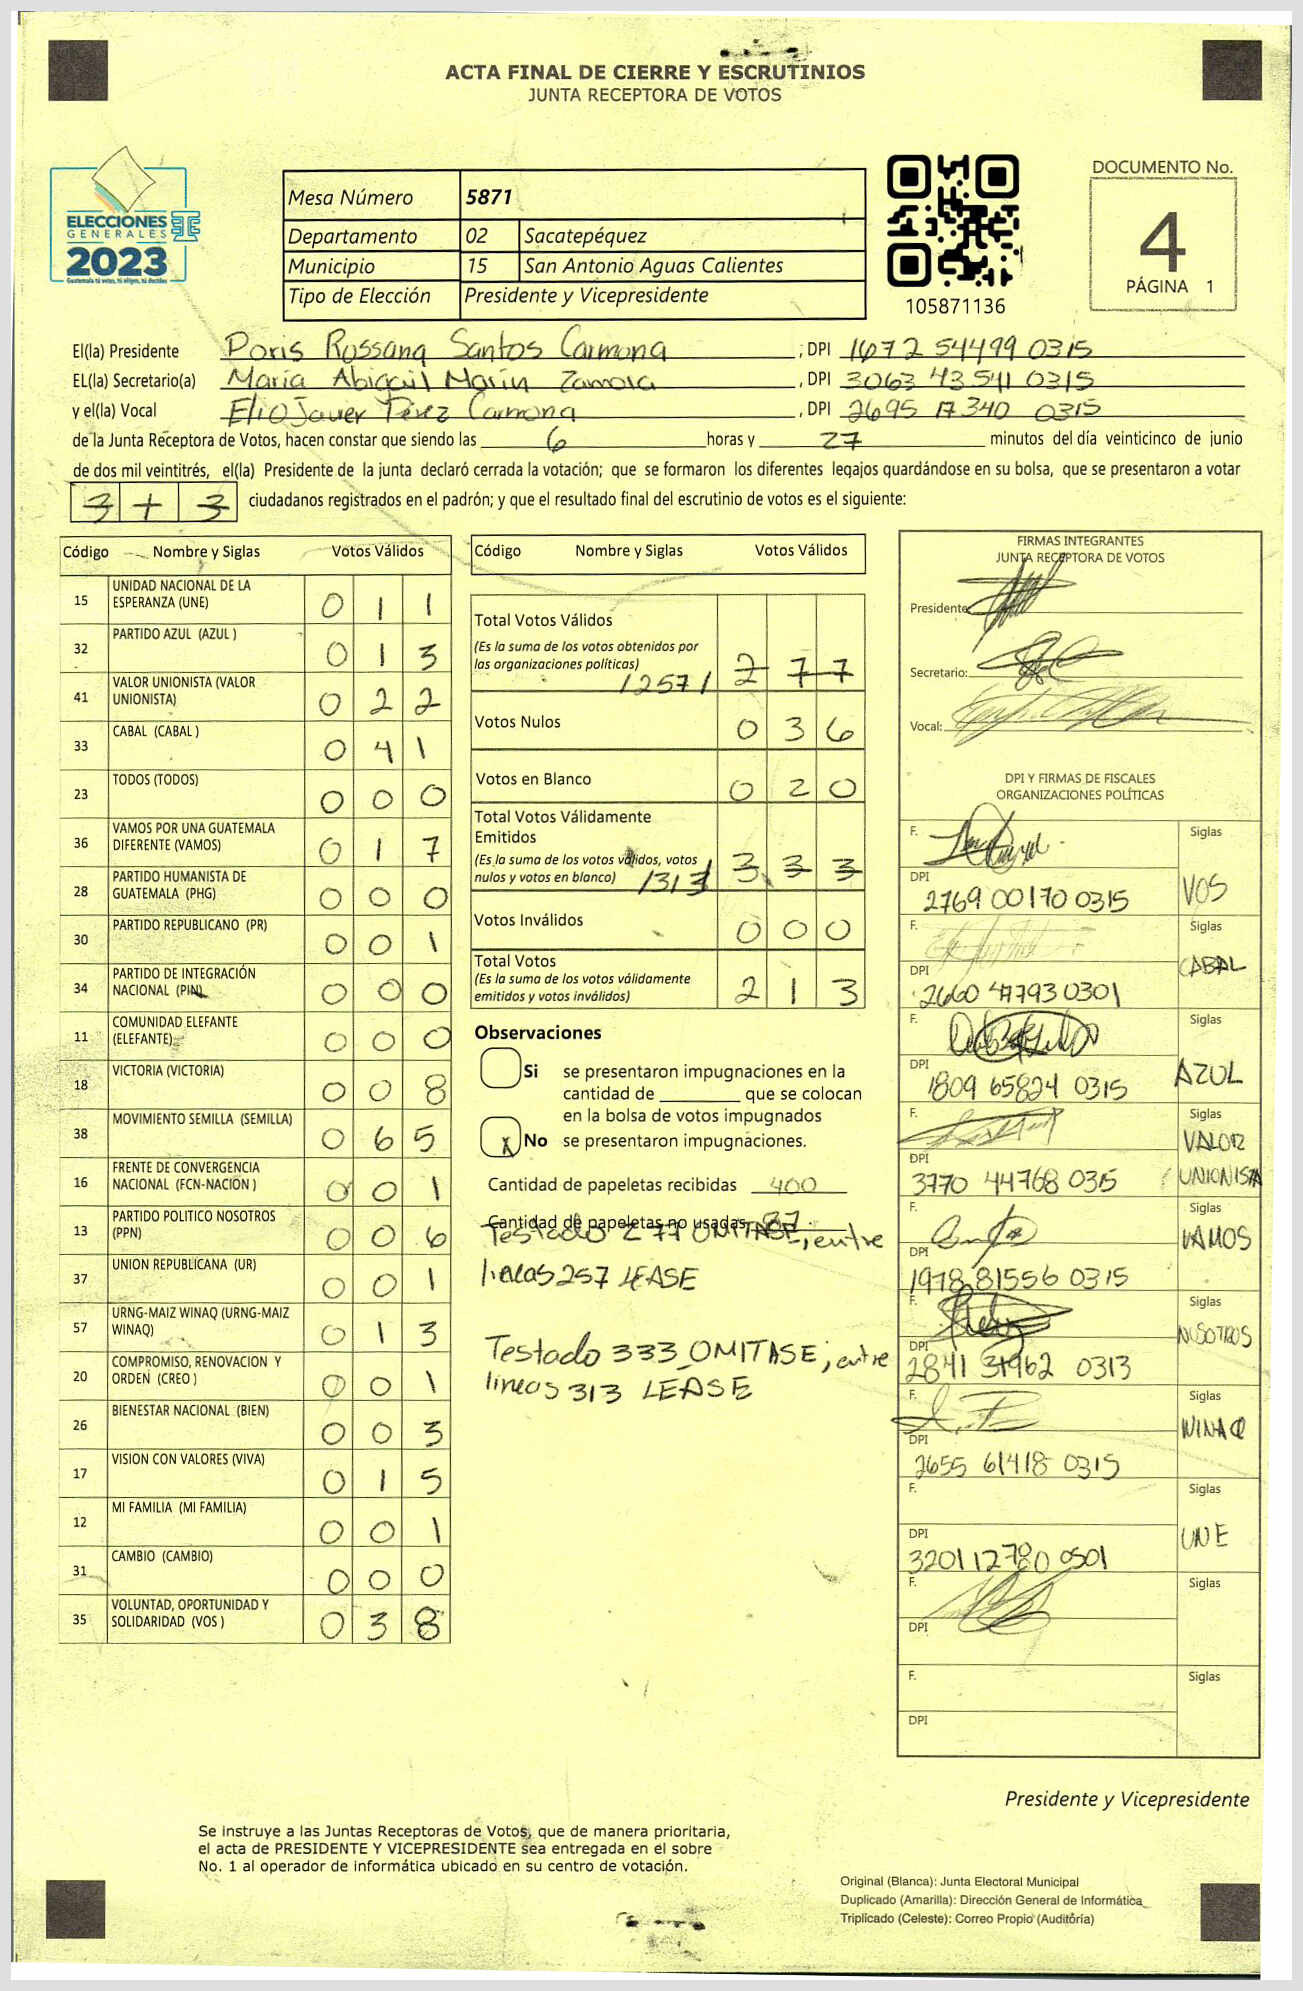 ACTA FINAL DE CIERRE Y ESCRUTINIOS
JUNTA RECEPTORA DE VOTOS
ELECCIONES
GENERALES
2023
Guatemala tú votas, tú eliges, tú decides
Mesa Número 5871
Departamento 02 Sacatepéquez
Municipio 15 San Antonio Aguas Calientes
Tipo de Elección Presidente y Vicepresidente
105871136
DOCUMENTO No.
4
PÁGINA 1
El(la) Presidente Doris Rossana Santos Carmona, DPI 1672 54499 0315
EL(la) Secretario(a) María Abigail Marín Zamora, DPI 3063 43541 0315
y el(la) Vocal Elio Javier Pérez Carmona, DPI 2695 17340 0315
de la Junta Receptora de Votos, hacen constar que siendo las 6 horas y 27 minutos del día veinticinco de junio
de dos mil veintitrés, el(la) Presidente de la junta declaró cerrada la votación; que se formaron los diferentes legajos guardándose en su bolsa, que se presentaron a votar
3 + 3 ciudadanos registrados en el padrón; y que el resultado final del escrutinio de votos es el siguiente:
Código Nombre y Siglas Votos Válidos
15 UNIDAD NACIONAL DE LA ESPERANZA (UNE) 0 1 1
32 PARTIDO AZUL (AZUL ) 0 1 3
41 VALOR UNIONISTA (VALOR UNIONISTA) 0 2 2
33 CABAL (CABAL ) 0 4 1
23 TODOS (TODOS) 0 0 0
36 VAMOS POR UNA GUATEMALA DIFERENTE (VAMOS) 0 1 7
28 PARTIDO HUMANISTA DE GUATEMALA (PHG) 0 0 0
30 PARTIDO REPUBLICANO (PR) 0 0 1
34 PARTIDO DE INTEGRACIÓN NACIONAL (PIN) 0 0 0
11 COMUNIDAD ELEFANTE (ELEFANTE) 0 0 0
18 VICTORIA (VICTORIA) 0 0 8
38 MOVIMIENTO SEMILLA (SEMILLA) 0 6 5
16 FRENTE DE CONVERGENCIA NACIONAL (FCN-NACIÓN ) 0 0 1
13 PARTIDO POLITICO NOSOTROS (PPN) 0 0 6
37 UNION REPUBLICANA (UR) 0 0 1
57 URNG-MAIZ WINAQ (URNG-MAIZ WINAQ) 0 1 3
20 COMPROMISO, RENOVACION Y ORDEN (CREO ) 0 0 1
26 BIENESTAR NACIONAL (BIEN) 0 0 3
17 VISION CON VALORES (VIVA) 0 1 5
12 MI FAMILIA (MI FAMILIA) 0 0 1
31 CAMBIO (CAMBIO) 0 0 0
35 VOLUNTAD, OPORTUNIDAD Y SOLIDARIDAD (VOS ) 0 3 8
Código Nombre y Siglas Votos Válidos
Total Votos Válidos
(Es la suma de los votos obtenidos por
las organizaciones políticas) /257/ 2 7 7
Votos Nulos 0 3 6
Votos en Blanco 0 2 0
Total Votos Válidamente
Emitidos
(Es la suma de los votos válidos, votos
nulos y votos en blanco) /313/ 3 3 3
Votos Inválidos 0 0 0
Total Votos
(Es la suma de los votos válidamente
emitidos y votos inválidos) 2 1 3
Observaciones
Si se presentaron impugnaciones en la
cantidad de ________ que se colocan
en la bolsa de votos impugnados
x No se presentaron impugnaciones.
Cantidad de papeletas recibidas 400
Cantidad de papeletas no usadas 87
Testado 277 OMITASE, entre
lineas 257 LEASE
Testado 333 OMITASE; entre
lineas 313 LEASE
FIRMAS INTEGRANTES
JUNTA RECEPTORA DE VOTOS
Presidente:
Secretario:
Vocal:
DPI Y FIRMAS DE FISCALES
ORGANIZACIONES POLÍTICAS
F. Siglas
DPI 2769 00170 0315 VOS
F. Siglas
DPI 2660 47793 0301 CABAL
F. Siglas
DPI 1809 65824 0315 AZUL
F. Siglas
DPI 3770 44768 0315 VALOR UNIONISTA
F. Siglas
DPI 1978 81556 0315 VAMOS
F. Siglas
DPI 2841 31962 0313 NOSOTROS
F. Siglas
DPI 2655 61418 0315 WINAQ
F. Siglas
DPI 3201 12780 0501 UNE
F. Siglas
DPI
F. Siglas
DPI
Presidente y Vicepresidente
Se instruye a las Juntas Receptoras de Votos, que de manera prioritaria,
el acta de PRESIDENTE Y VICEPRESIDENTE sea entregada en el sobre
No. 1 al operador de informática ubicado en su centro de votación.
Original (Blanca): Junta Electoral Municipal
Duplicado (Amarilla): Dirección General de Informática
Triplicado (Celeste): Correo Propio (Auditoría)